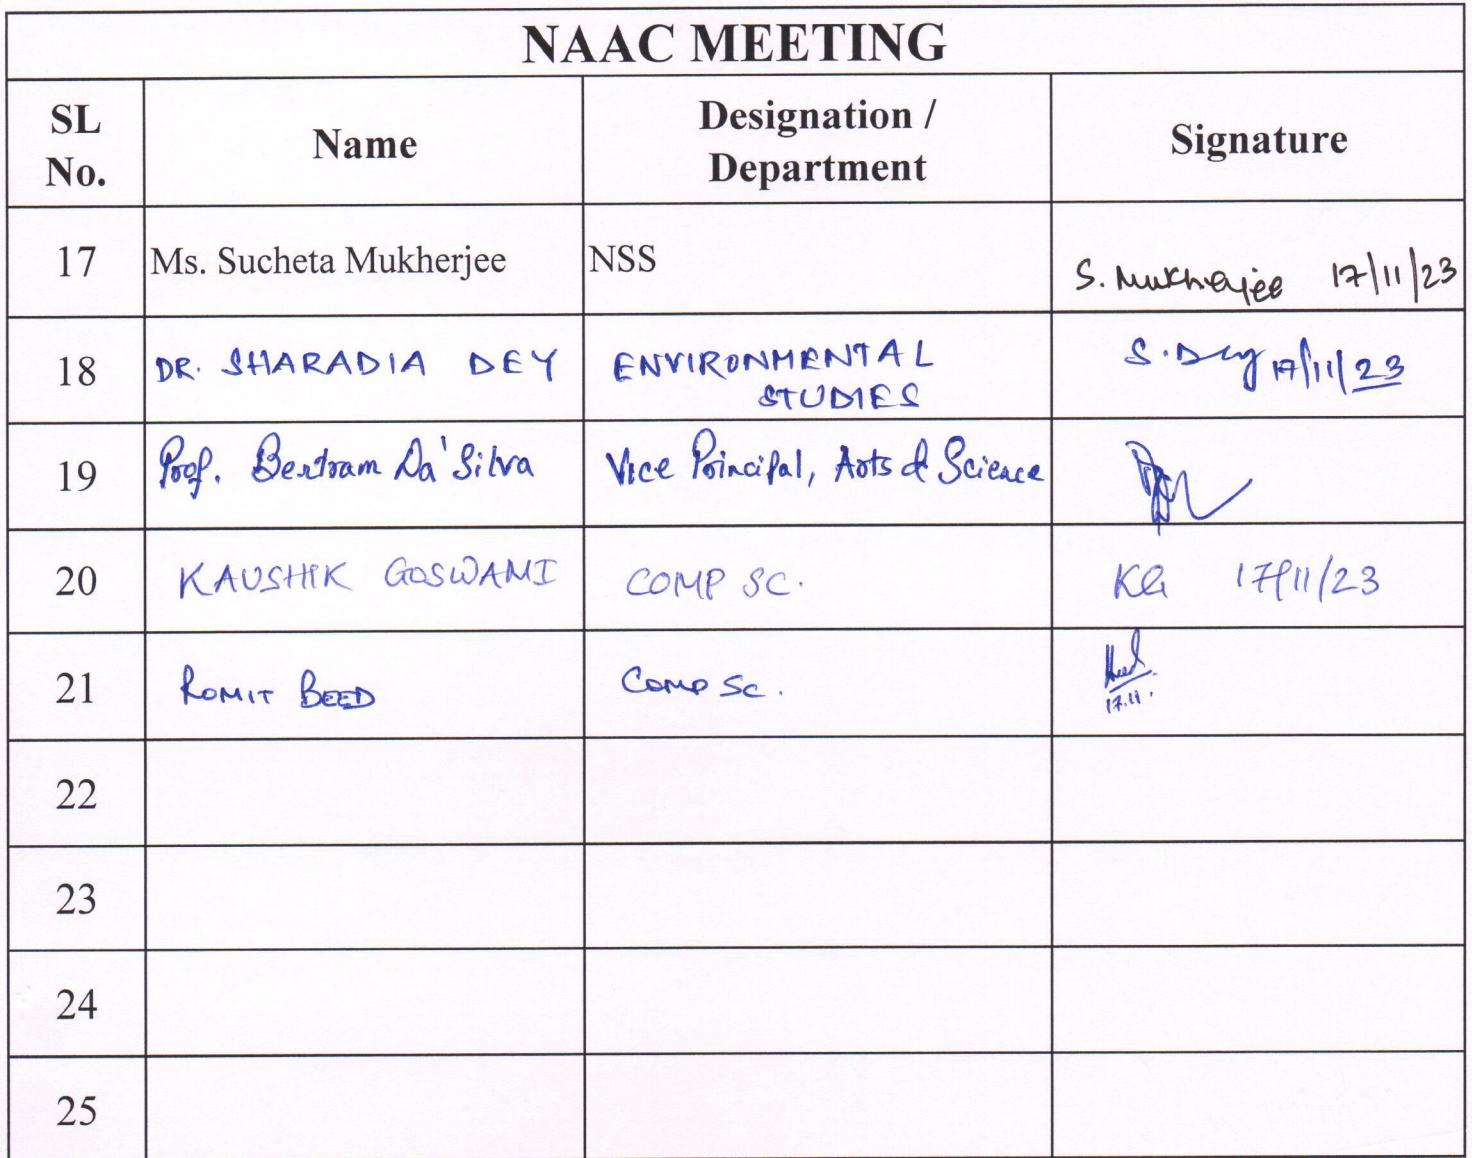 NAAC MEETING
SL No. Name Designation / Department Signature
17 Ms. Sucheta Mukherjee NSS S. Mukherjee 17/11/23
18 DR. SHARADIA DEY ENVIRONMENTAL STUDIES S. Dey 17/11/23
19 Prof. Bertram Da'Silva Vice Principal, Arts & Science
20 KAUSHIK GOSWAMI COMP SC. KG 17/11/23
21 ROMIT BEED COMP SC. 17.11.
22
23
24
25